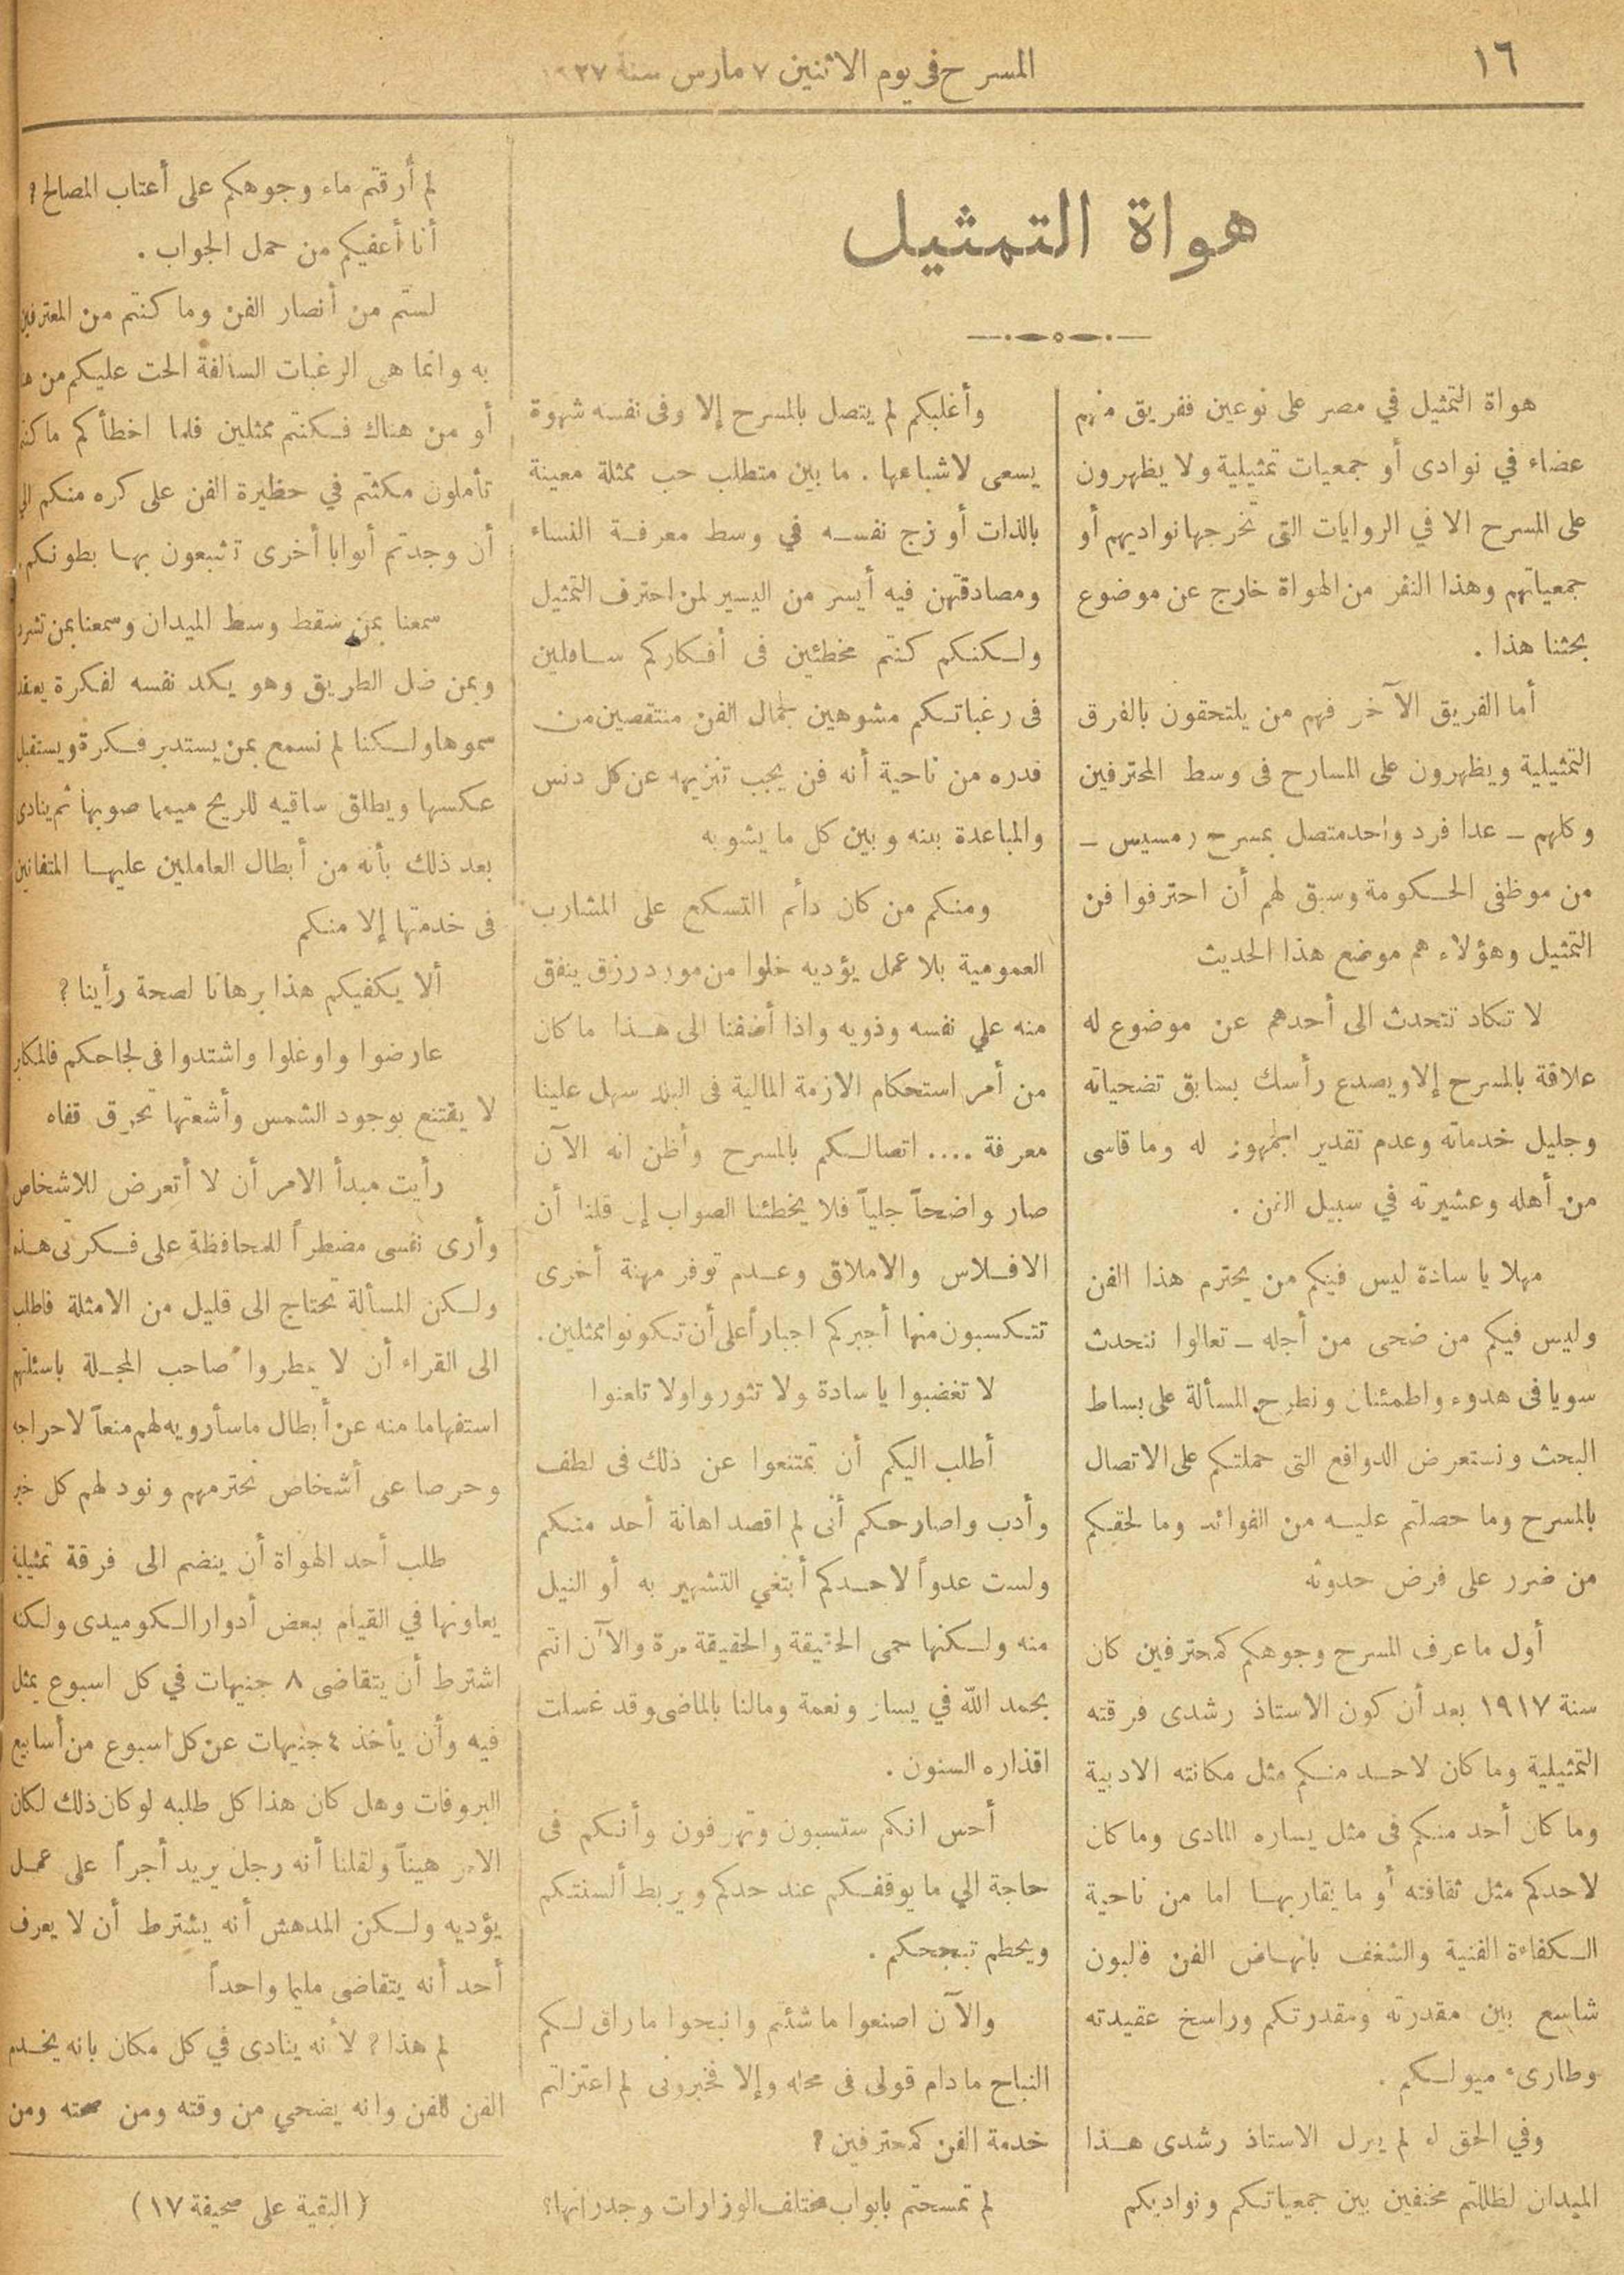 ١٦
المسرح فى يوم الاثنين ٧ مارس سنة ١٩٢٧
هواة التمثيل
هواة التمثيل في مصر على نوعين ففريق منهم
عضاء في نوادى أو جمعيات تمثيلية ولا يظهرون
على المسرح الا في الروايات التى تخرجها نواديهم أو
جمعياتهم وهذا النفر من الهواة خارج عن موضوع
بحثنا هذا .
أما الفريق الآخر فهم من يلتحقون بالفرق
التمثيلية ويظهرون على المسارح فى وسط المحترفين
وكلهم – عدا فرد واحد متصل بمسرح رمسيس –
من موظفى الحكومة وسبق لهم أن احترفوا فن
التمثيل وهؤلاء هم موضع هذا الحديث
لا تكاد تتحدث الى أحدهم عن موضوع له
علاقة بالمسرح إلا ويصدع رأسك بسابق تضحياته
وجليل خدماته وعدم تقدير الجمهور له وما قاسى
من أهله وعشيرته في سبيل الفن .
مهلا يا سادة ليس فيكم من يحترم هذا الفن
وليس فيكم من ضحى من أجله – تعالوا نتحدث
سويا فى هدوء واطمئنان ونطرح المسألة على بساط
البحث ونستعرض الدوافع التى حملتكم على الاتصال
بالمسرح وما حصلتم عليه من الفوائد وما لحقكم
من ضرر على فرض حدوثه
أول ما عرف المسرح وجوهكم كمحترفين كان
سنة ١٩١٧ بعد أن كون الاستاذ رشدى فرقته
التمثيلية وما كان لاحد منكم مثل مكانته الادبية
وما كان أحد منكم فى مثل يساره المادى وما كان
لاحدكم مثل ثقافته أو ما يقاربها اما من ناحية
الكفاءة الفنية والشغف بانهاض الفن فالبون
شاسع بين مقدرته ومقدرتكم وراسخ عقيدته
وطارىء ميولكم .
وفي الحق لو لم ينزل الاستاذ رشدى هذا
الميدان لظللتم مختفين بين جمعياتكم ونواديكم
وأغلبكم لم يتصل بالمسرح إلا وفى نفسه شهوة
يسعى لاشباعها . ما بين متطلب حب ممثلة معينة
بالذات أو زج نفسه في وسط معرفة النساء
ومصادقتهن فيه أيسر من اليسير لمن احترف التمثيل
ولكنكم كنتم مخطئين فى أفكاركم سافلين
فى رغباتكم مشوهين لجمال الفن منتقصين من
قدره من ناحية أنه فن يجب تنزيهه عن كل دنس
والمباعدة بينه وبين كل ما يشوبه
ومنكم من كان دائم التسكع على المشارب
العمومية بلا عمل يؤديه خلوا من مورد رزق ينفق
منه علي نفسه وذويه واذا أضفنا الى هذا ما كان
من أمر استحكام الازمة المالية فى البلد سهل علينا
معرفة .... اتصالكم بالمسرح وأظن انه الآن
صار واضحاً جلياً فلا يخطئنا الصواب إن قلنا أن
الافلاس والاملاق وعدم توفر مهنة أخرى
تتكسبون منها أجبركم اجباراً على أن تكونوا ممثلين .
لا تغضبوا يا سادة ولا تثوروا ولا تلعنوا
أطلب اليكم أن تمتنعوا عن ذلك فى لطف
وأدب واصارحكم أنى لم اقصد اهانة أحد منكم
ولست عدواً لاحدكم أبتغي التشهير به أو النيل
منه ولكنها حمى الحقيقة والحقيقة مرة والآن انتم
بحمد الله في يسار ونعمة ومالنا بالماضى وقد غسلت
اقذاره السنون .
أحس انكم ستسبون وتهرفون وأنكم فى
حاجة الي ما يوقفكم عند حدكم ويربط ألسنتكم
ويحطم تبجحكم .
والآن اصنعوا ما شئتم وانبحوا ما راق لكم
النباح ما دام قولى فى محله وإلا فخبرونى لم اعتزلتم
خدمة الفن كمحترفين ؟
لم تمسحتم بابواب مختلف الوزارات وجدرانها؟
لم أرقتم ماء وجوهكم على أعتاب المصالح ؟
أنا أعفيكم من حمل الجواب .
لستم من أنصار الفن وما كنتم من المعترفين
به وانما هى الرغبات السالفة الحت عليكم من هنا
أو من هناك فكنتم ممثلين فلما اخطأكم ما كنتم
تأملون مكثتم في حظيرة الفن على كره منكم الي
أن وجدتم أبوابا أخرى تشبعون بها بطونكم .
سمعنا بمن سقط وسط الميدان وسمعنا بمن تشرد
وبمن ضل الطريق وهو يكد نفسه لفكرة يعتقد
سموها ولكنا لم نسمع بمن يستدبر فكرة ويستقبل
عكسها ويطلق ساقيه للريح ميمما صوبها ثم ينادى
بعد ذلك بأنه من أبطال العاملين عليها المتفانين
فى خدمتها إلا منكم
ألا يكفيكم هذا برهانا لصحة رأينا ؟
عارضوا واوغلوا واشتدوا فى لجاجكم فالمكابر
لا يقتنع بوجود الشمس وأشعتها تحرق قفاه
رأيت مبدأ الامر أن لا أتعرض للاشخاص
وأرى نفسى مضطراً للمحافظة على فكرتى هذه
ولكن المسألة تحتاج الى قليل من الامثلة فاطلب
الى القراء أن لا يمطروا صاحب المجلة باسئلتهم
استفهاما منه عن أبطال ماسأرويه لهم منعاً لاحراجه
وحرصا على أشخاص نحترمهم ونود لهم كل خير
طلب أحد الهواة أن ينضم الى فرقة تمثيلية
يعاونها في القيام ببعض أدوار الكوميدى ولكنه
اشترط أن يتقاضى ٨ جنيهات في كل اسبوع يمثل
فيه وأن يأخذ ٤ جنيهات عن كل اسبوع من أسابيع
البروفات وهل كان هذا كل طلبه لو كان ذلك لكان
الامر هيناً ولقلنا أنه رجل يريد أجراً على عمل
يؤديه ولكن المدهش أنه يشترط أن لا يعرف
أحد أنه يتقاضى مليما واحداً
لم هذا ؟ لأنه ينادى في كل مكان بانه يخدم
الفن للفن وانه يضحي من وقته ومن صحته ومن
( البقية على صحيفة ١٧ )